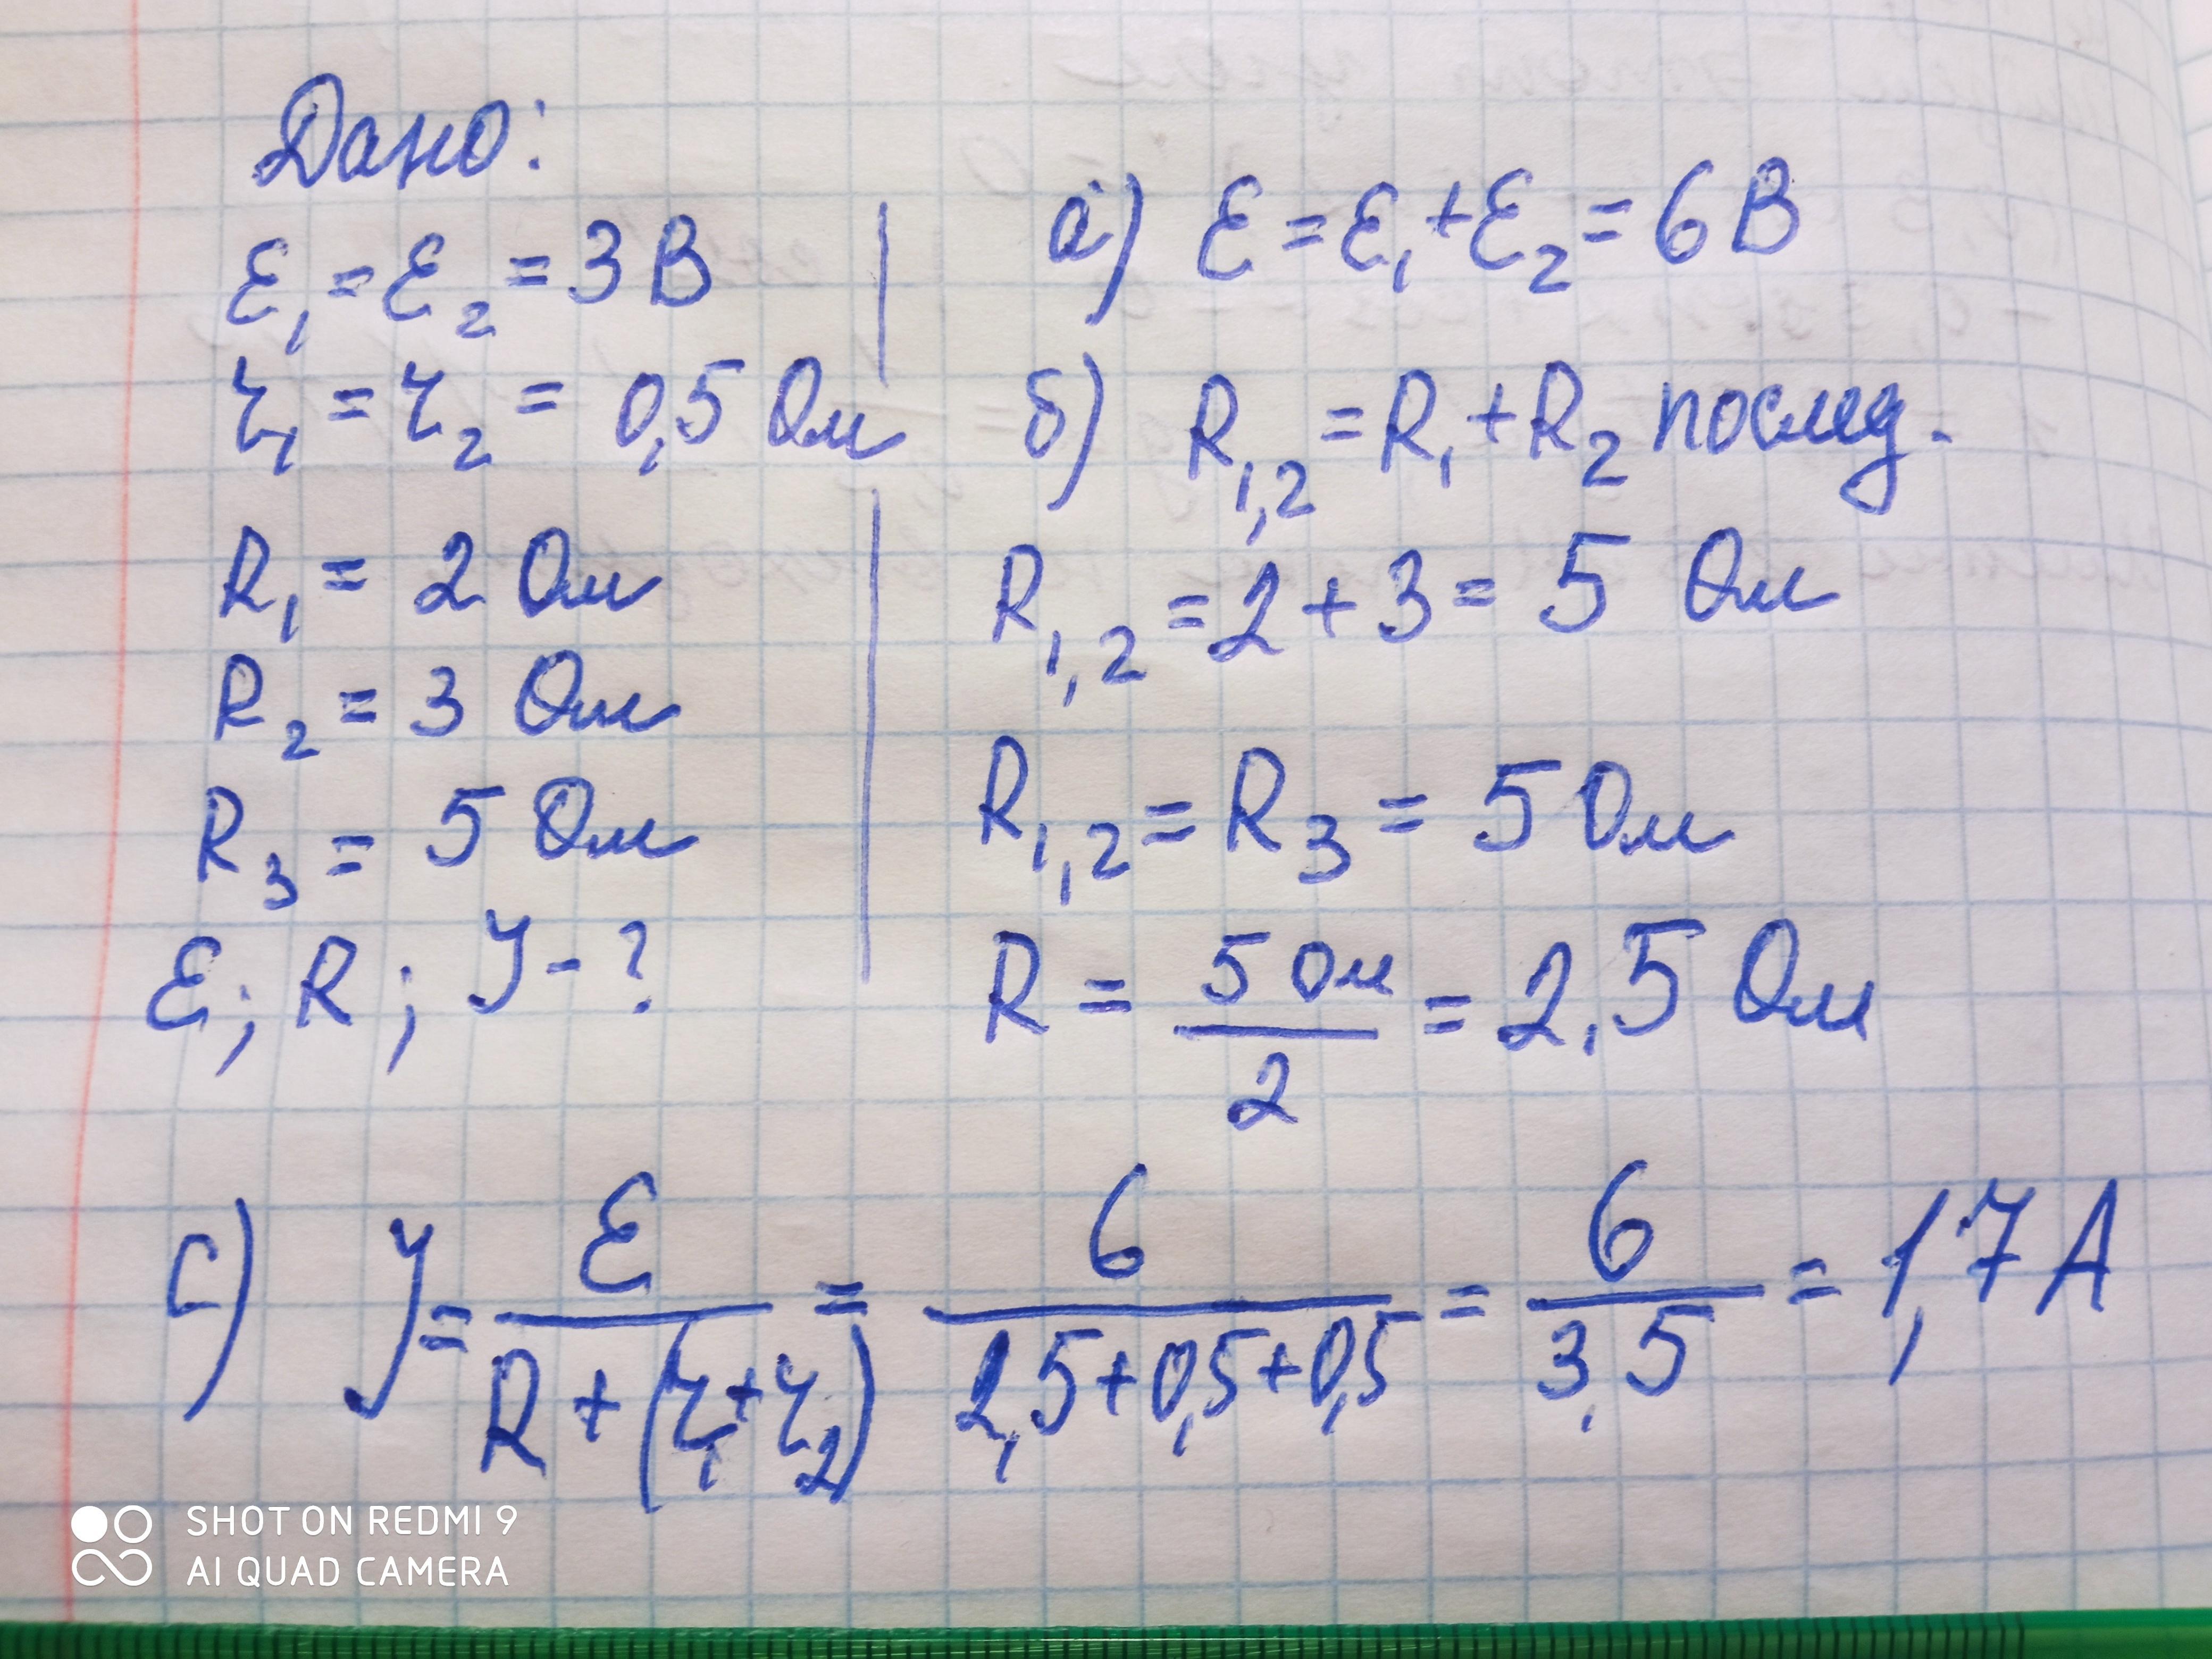 Дано:
ε₁ = ε₂ = 3 В
r₁ = r₂ = 0,5 Ом
R₁ = 2 Ом
R₂ = 3 Ом
R₃ = 5 Ом
ε; R; У - ?
а) ε = ε₁ + ε₂ = 6 В
б) R₁,₂ = R₁ + R₂ послед.
R₁,₂ = 2 + 3 = 5 Ом
R₁,₂ = R₃ = 5 Ом
R = 5 Ом / 2 = 2,5 Ом
с) У = ε / R + (r₁ + r₂) = 6 / 2,5 + 0,5 + 0,5 = 6 / 3,5 = 1,7 А
SHOT ON REDMI 9
AI QUAD CAMERA